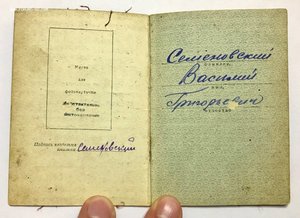 Место
для
фотокарточки
Действительно без
фотокарточки
Подпись владельца
книжки Семеновский
Семеновский
фамилия
Василий
имя
Григорьевич
отчество